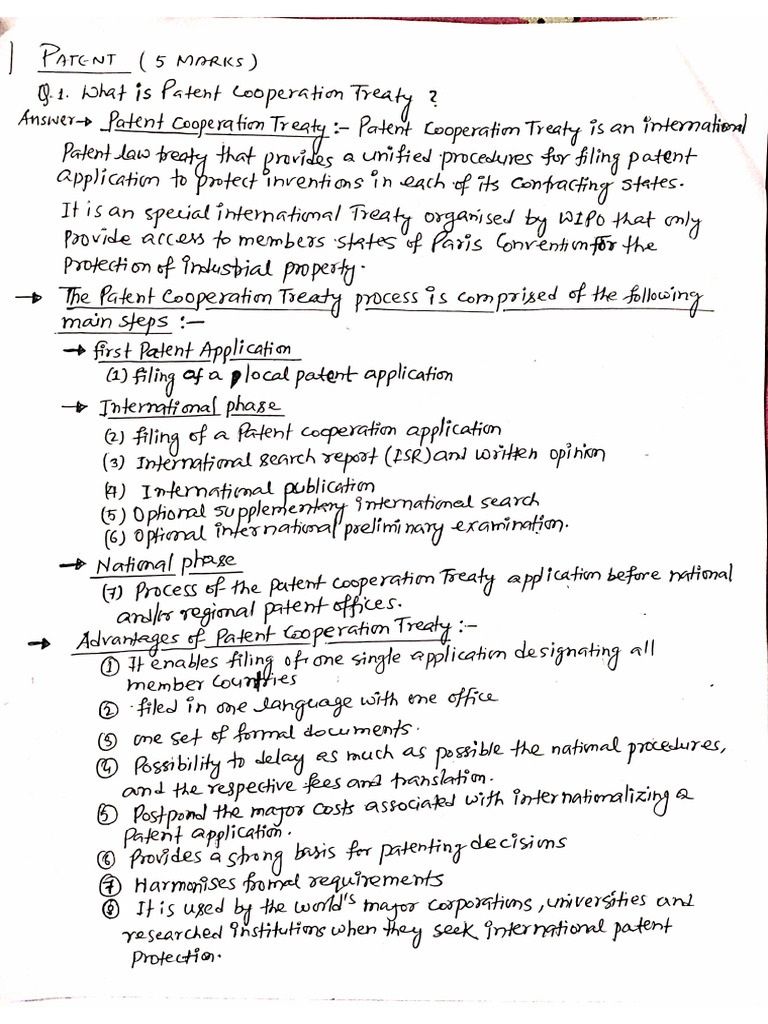 PATENT (5 MARKS)
Q.1. What is Patent Cooperation Treaty ?
Answer→ Patent Cooperation Treaty :- Patent Cooperation Treaty is an international
Patent law treaty that provides a unified procedures for filing patent
application to protect inventions in each of its contracting states.
It is an special international Treaty organised by WIPO that only
provide access to members states of Paris Convention for the
Protection of industrial property.
→ The Patent Cooperation Treaty process is comprised of the following
main steps :-
→ first Patent Application
(1) filing of a local patent application
→ International phase
(2) filing of a Patent cooperation application
(3) International search report (ISR) and written opinion
(4) International publication
(5) Optional supplementary international search
(6) Optional international preliminary examination.
→ National phase
(7) Process of the patent cooperation Treaty application before national
and/or regional patent offices.
→ Advantages of Patent Cooperation Treaty :-
① It enables filing of one single application designating all
member countries
② filed in one language with one office
③ one set of formal documents.
④ Possibility to delay as much as possible the national procedures,
and the respective fees and translation.
⑤ Postpond the major costs associated with internationalizing a
patent application.
⑥ Provides a strong basis for patenting decisions
⑦ Harmonises fromal requirements
⑧ It is used by the world's major corporations, universities and
researched institutions when they seek international patent
Protection.